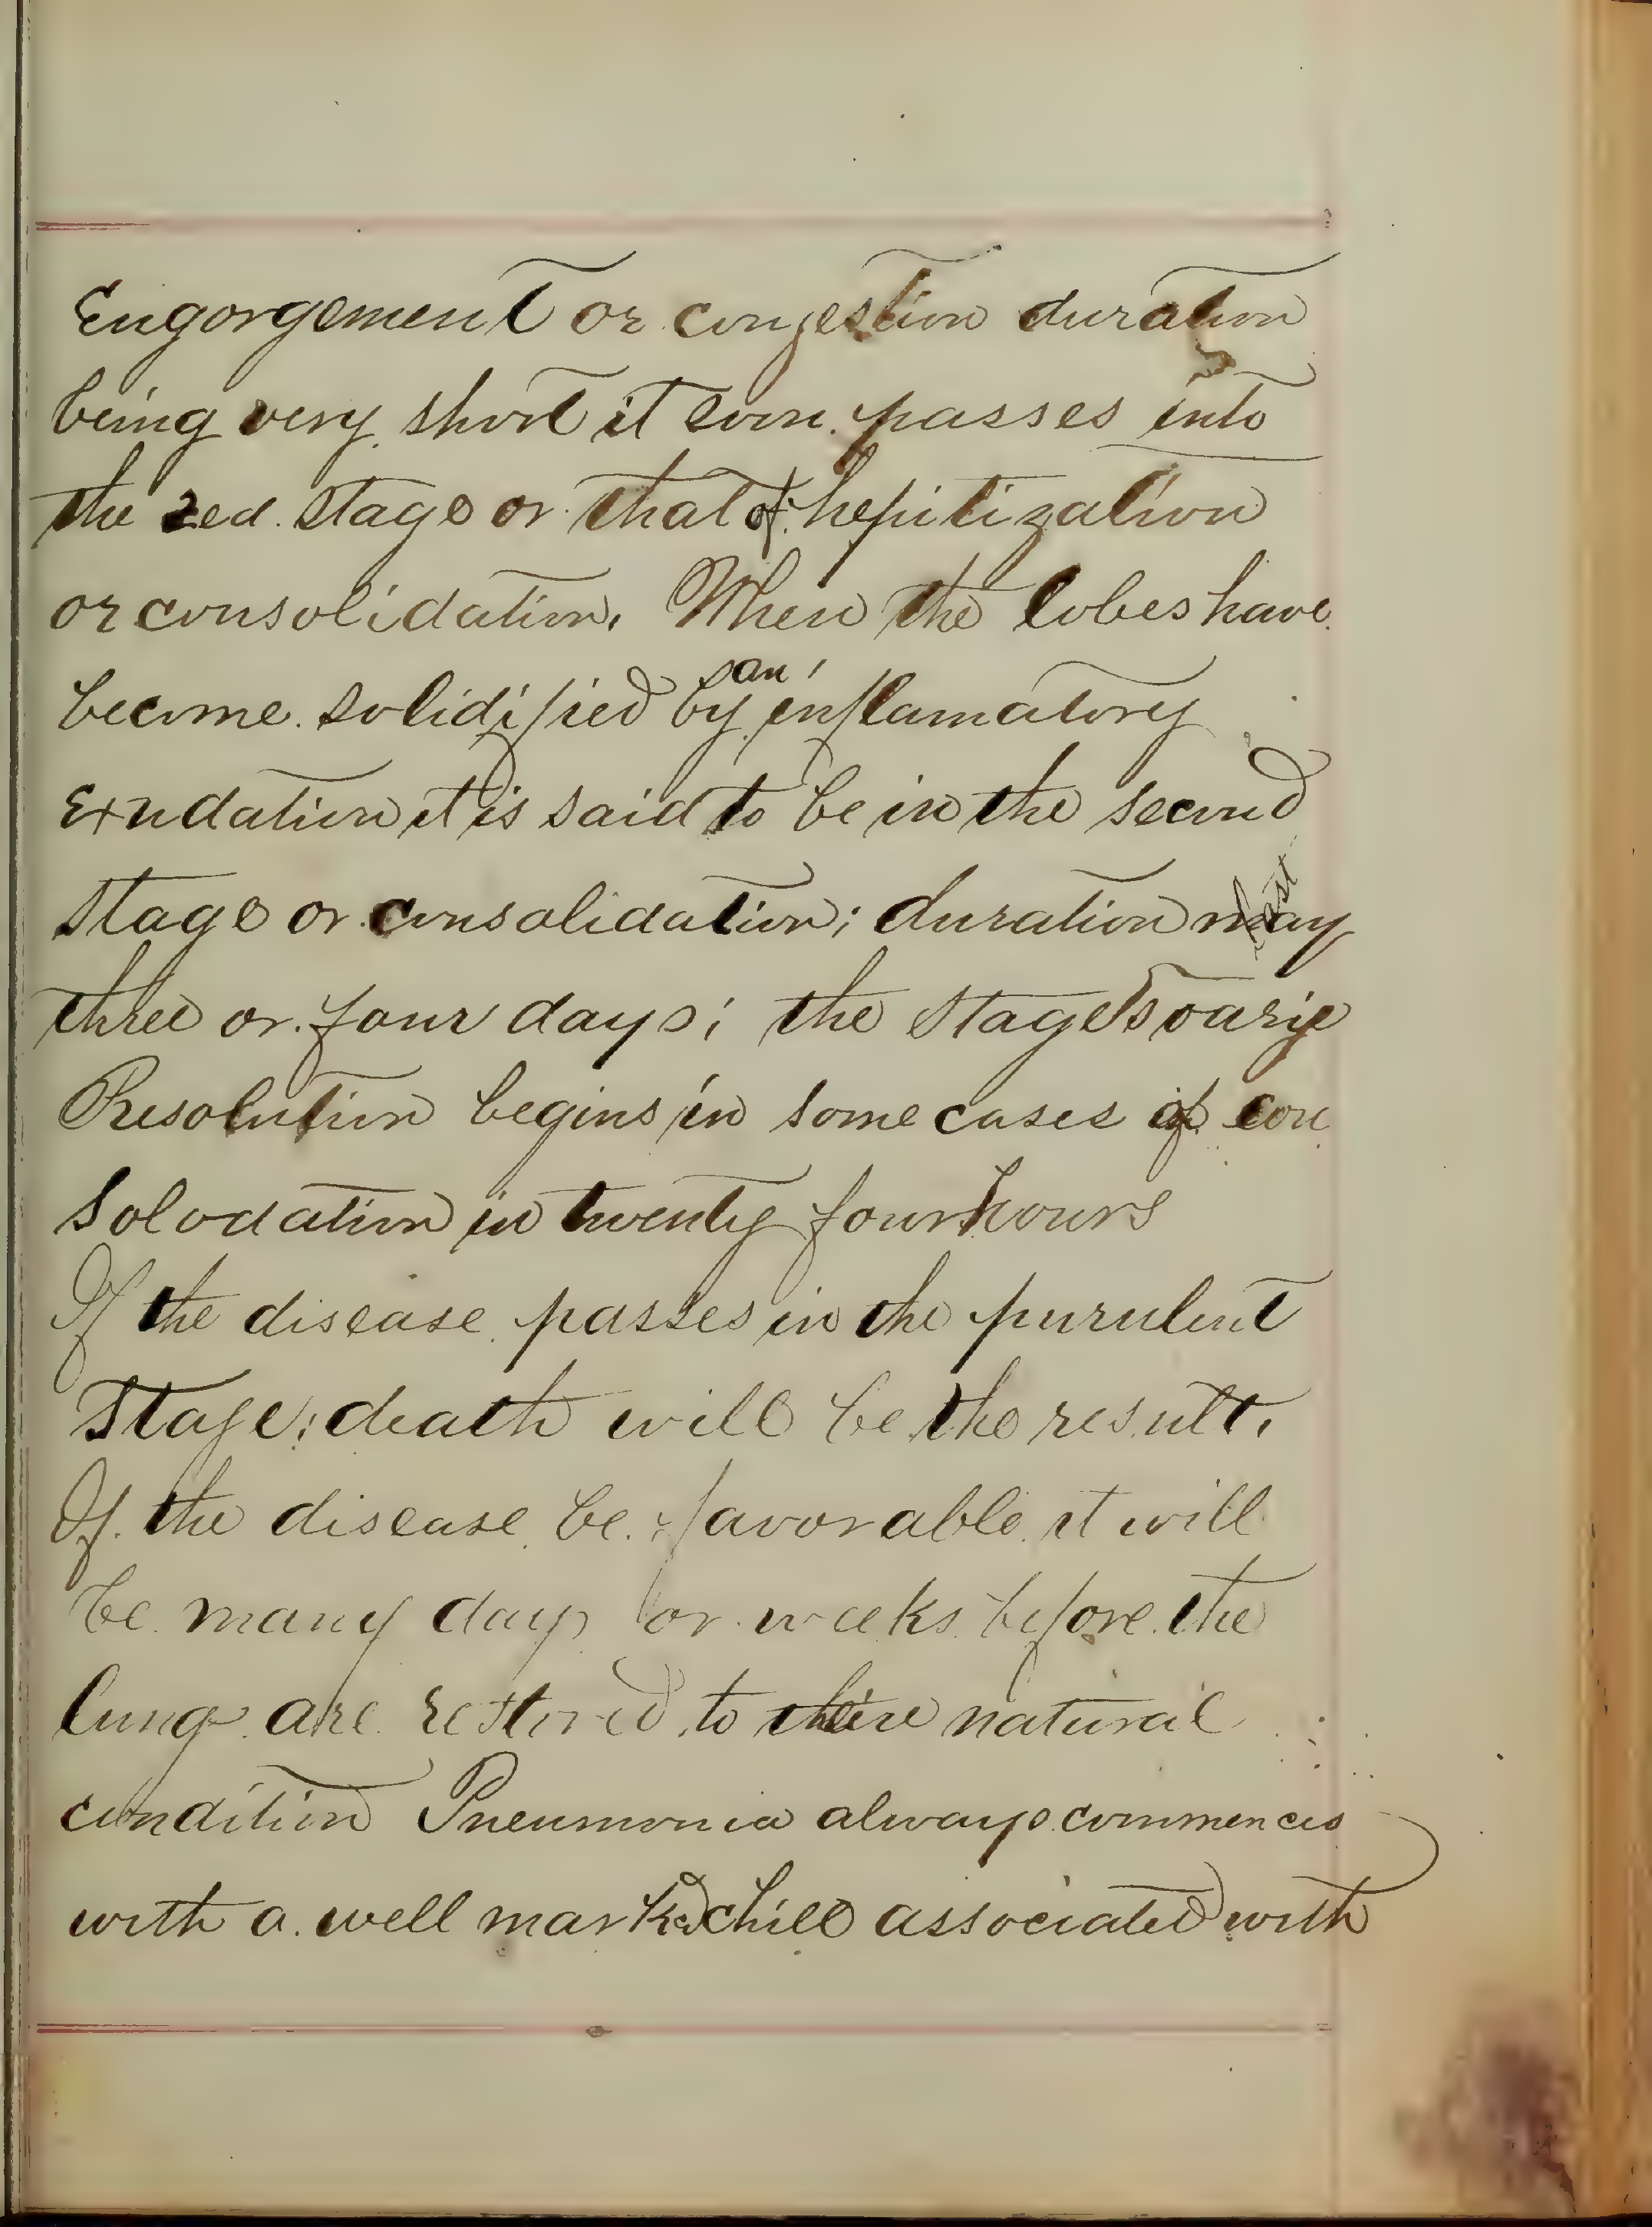 Engorgement or congestion duration
being very short it soon passes into
the 2ed. stage or that of hepitization
or consolidation, When the lobes have
become solidified by an inflamatory
Exudation it is said to be in the second
stage or consolidation; duration may last
three or four days; the stages varie
Resolution begins in some cases of con
solodation in twenty four hours
If the disease passes in the purulent
stage; death will be the result.
If the disease be favorable it will
be many days or weeks before the
lung are restored to theire natural
condition Pneumonia always commences
with a well marked chill associated with